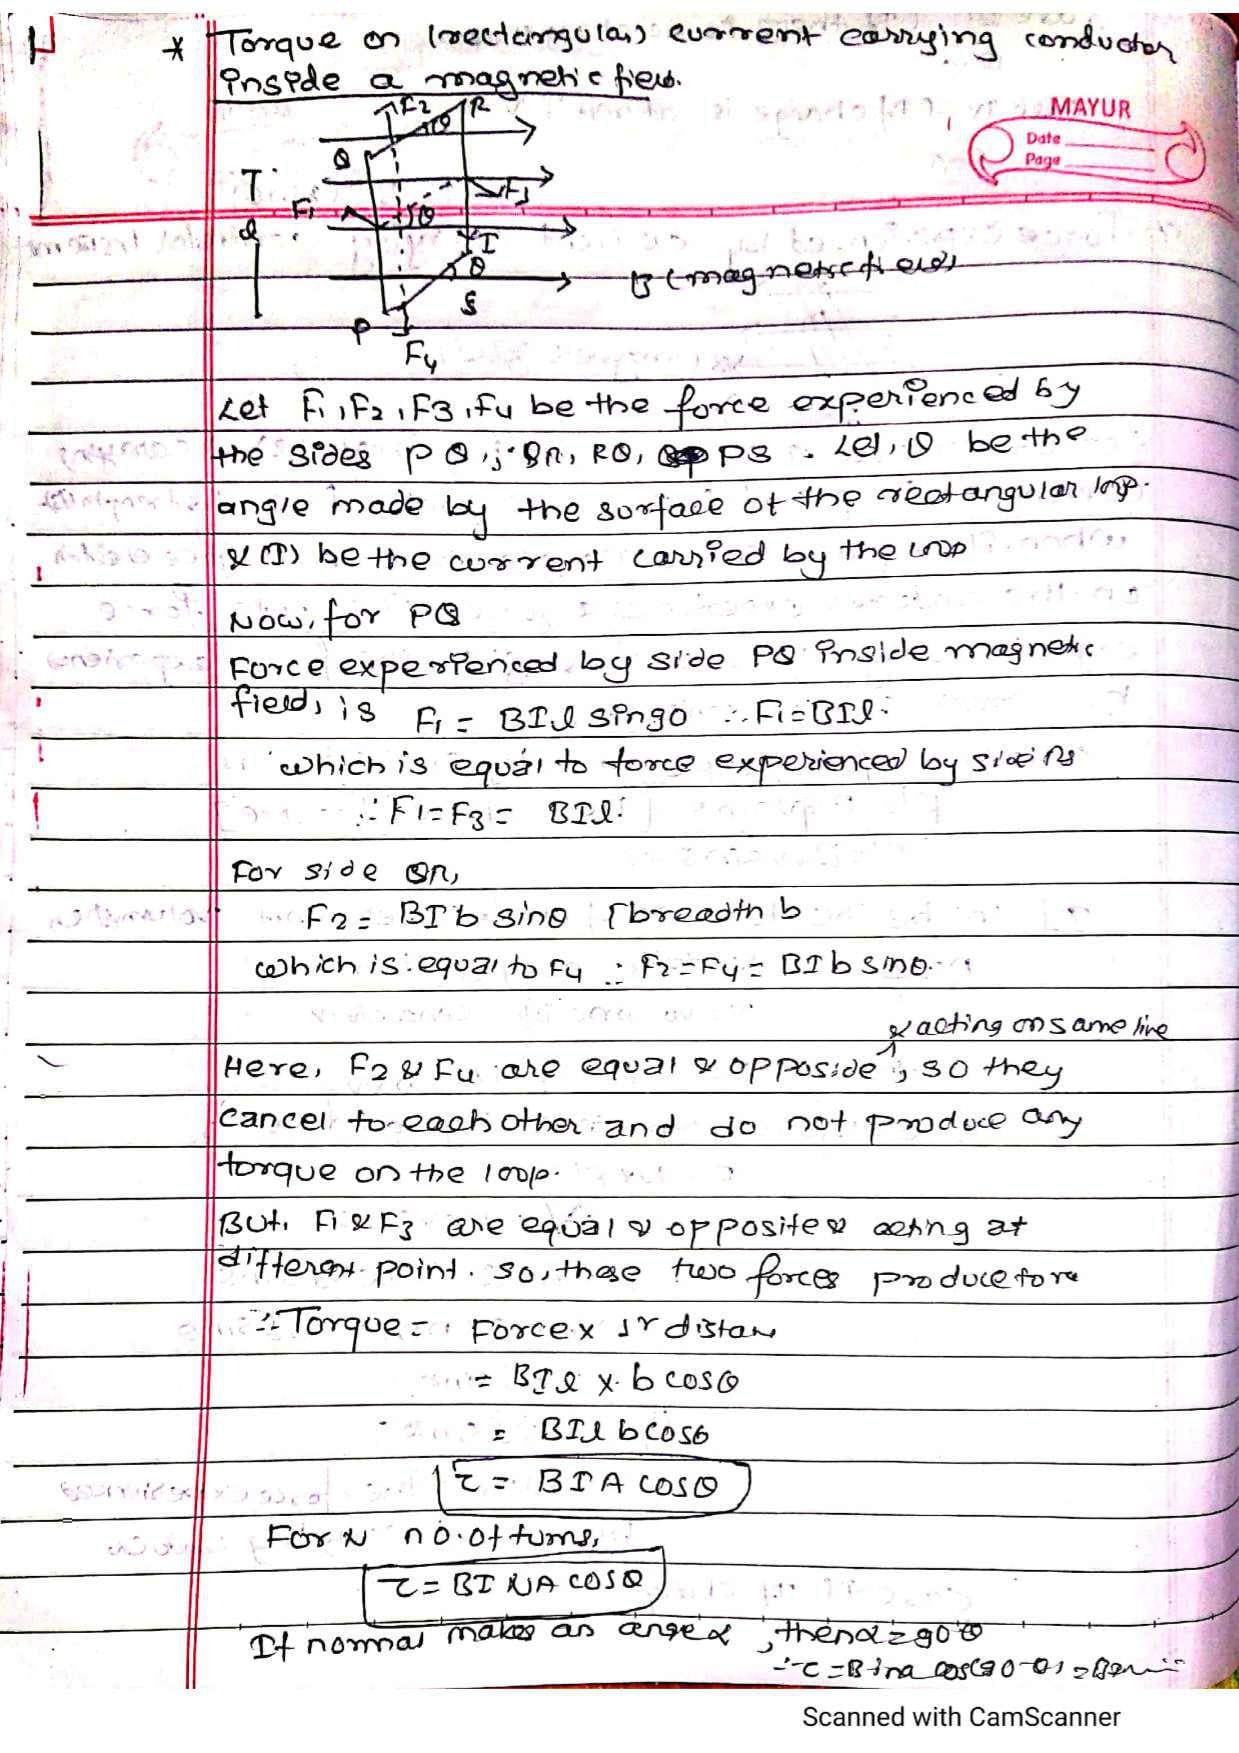 * Torque on (rectangular) current carrying conductor
inside a magnetic field.
MAYUR
Date
Page
F2 R
θ
Q
F3
F1 θ
l
I
θ
B (magnetic field)
S
P
F4
Let F1, F2, F3, F4 be the force experienced by
the sides PQ, QR, RQ, PS. Let, θ be the
angle made by the surface of the rectangular loop.
& (I) be the current carried by the loop
Now, for PQ
Force experienced by side PQ inside magnetic
field, is F1 = BIl sin90 ∴ F1 = BIl.
which is equal to force experienced by side RS
∴ F1 = F3 = BIl.
For side QR,
F2 = BIb sinθ [breadth b
which is equal to F4 ∴ F2 = F4 = BIb sinθ.
& acting on same line
Here, F2 & F4 are equal & opposide, so they
cancel to each other and do not produce any
torque on the loop.
But, F1 & F3 are equal & opposite & acting at
different point. so, these two forces produce
∴ Torque = Force x ⊥r distan
= BIl x b cosθ
= BIl b cosθ
τ = BIA cosθ
For N no. of turns,
τ = BINA cosθ
If normal makes an angle α, then α = 90
∴ τ = Bina cos(90-θ) =
Scanned with CamScanner